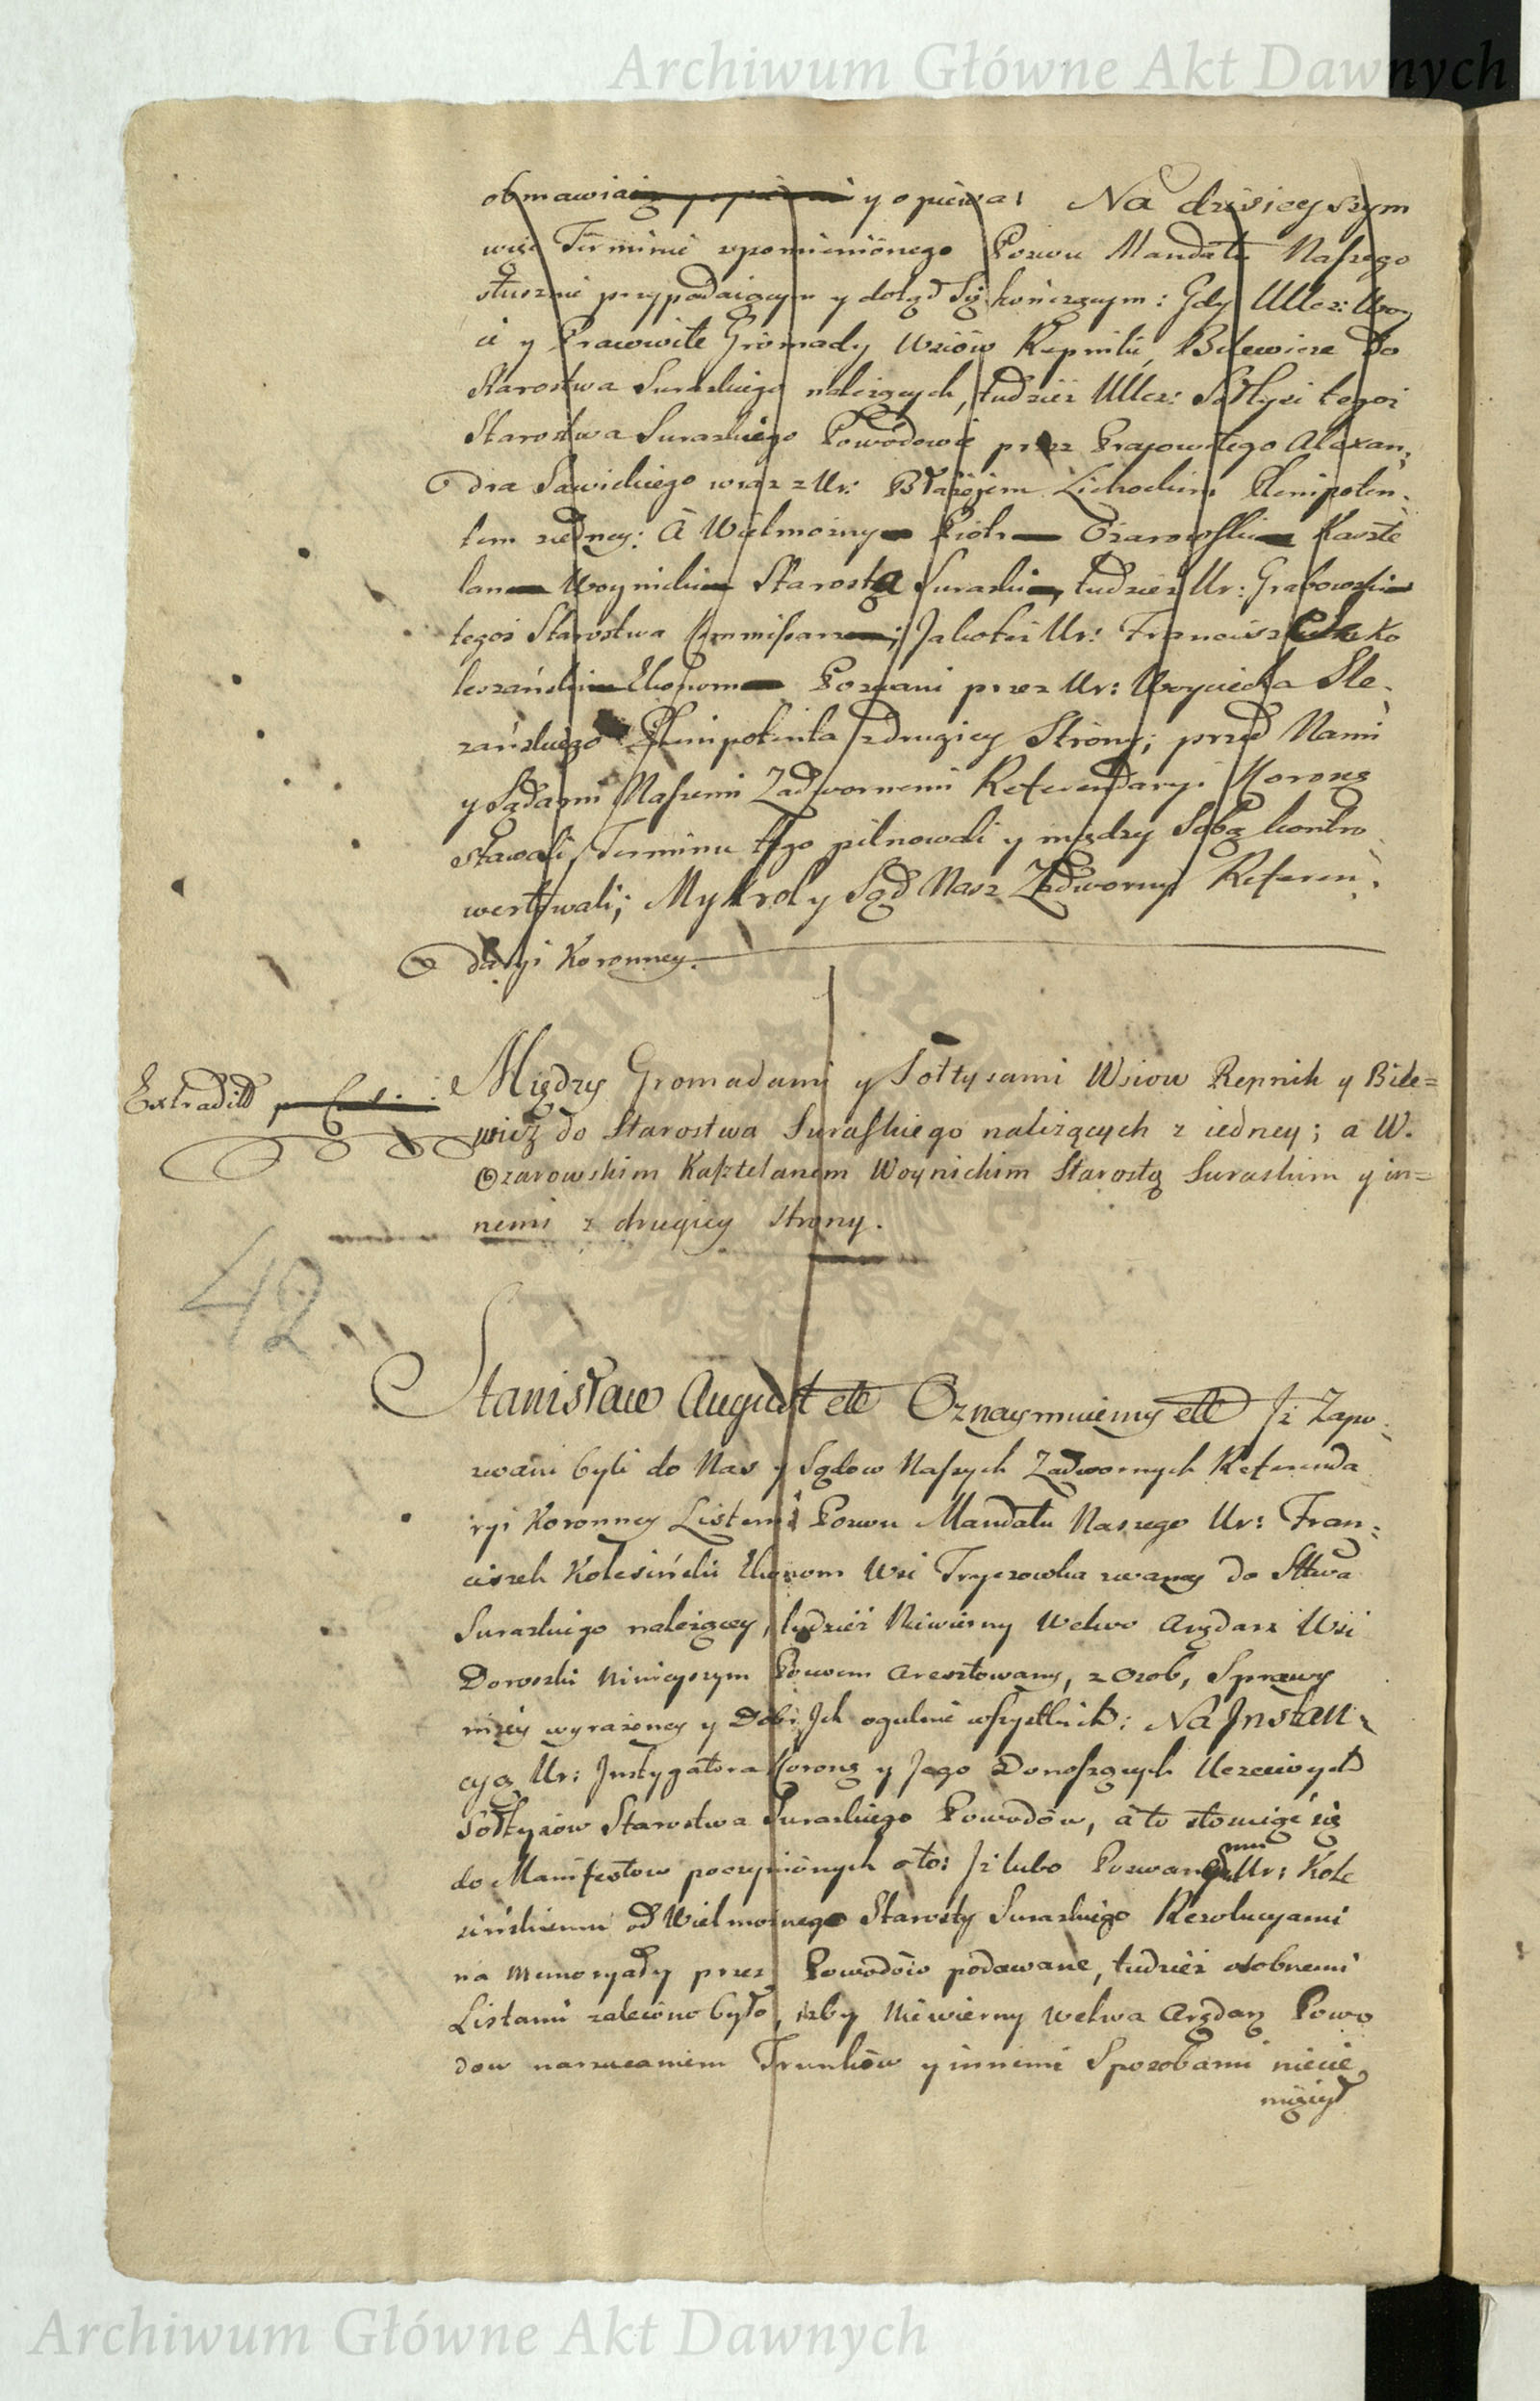 Archiwum Główne Akt Dawnych
obmawia y opiewa: Na dzisieyszym
więc Terminie wspomnionego Pozwu Mandatu Naszego
słusznie przypadaiącym y dotąd Się kończącym: Gdy Ucz: Woy
ci y Pracowite Gromady Wsiów Repniki, Bilewicze do
Starostwa Suraskiego należących, tudzież Ucz: Sołtysi tegoż
Starostwa Suraskiego Powodowie przez Pracowitego Alexan:
dra Sawickiego wraz z Ur: Błażejem Lichockim Plenipoten:
tem z iedney: A Wielmożny Piotr Ożarowski Kaszte
lan Woynicki Starosta Suraski, tudzież Ur: Grabowski
tegoż Starostwa Commissarz; Jakoteż Ur: Franciszek Ko
Ekonom Pozwani przez Ur: Woyciecha Śle:
zańskiego Plenipotenta z drugiey Strony; przed Nami
y Sądami Naszemi Zadwornemi Referendaryi Koronney
stawali, Terminu tego pilnowali y między Sobą kontro
wertowali; My Krol y Sąd Nasz Zadworny Referen:
daryi Koronney.
Extradit
Między Gromadami y Sołtysami Wsiow Repnik y Bile=
wicz do Starostwa Suraskiego należących z iedney; a W.
Ożarowskim Kasztelanem Woynickim Starostą Suraskim y in=
nemi z drugiey strony.
42
Stanisław August etc Oznaymuiemy etc Iż Zapo:
zwani byli do Nas y Sądow Naszych Zadwornych Referenda
ryi Koronney Listem Pozwu Mandatu Naszego Ur: Fran:
ciszek Kolesiński Ekonom Wsi Tryczowka zwaney do Sttwa
Suraskiego należącey, tudzież Niewierny Welwo Arędarz Wsi
Doroszki Ninieyszym Pozwem aresztowany, z Osob, Sprawy
niżey wyrażoney y Dobr Ich ogulnie wszystkich: Na Instan:
cyą Ur: Instygatora Korong y Jego Donoszących Uczciwych
Sołtysow Starostwa Suraskiego Powodow, a to stosuiąc się
do Manifestow poczynionych oto: Iż lubo Pozwanemu Ur: Kole
sińskiemu od Wielmożnego Starosty Suraskiego Rezolucyami
na Memoryały przez Powodów podawane, tudzież osobnemi
Listami zalecono było, iżby Niewierny Welwa Arędarz Powo
dow narzucaniem Trunków y innemi Sposobami niecie
miężył
Archiwum Główne Akt Dawnych